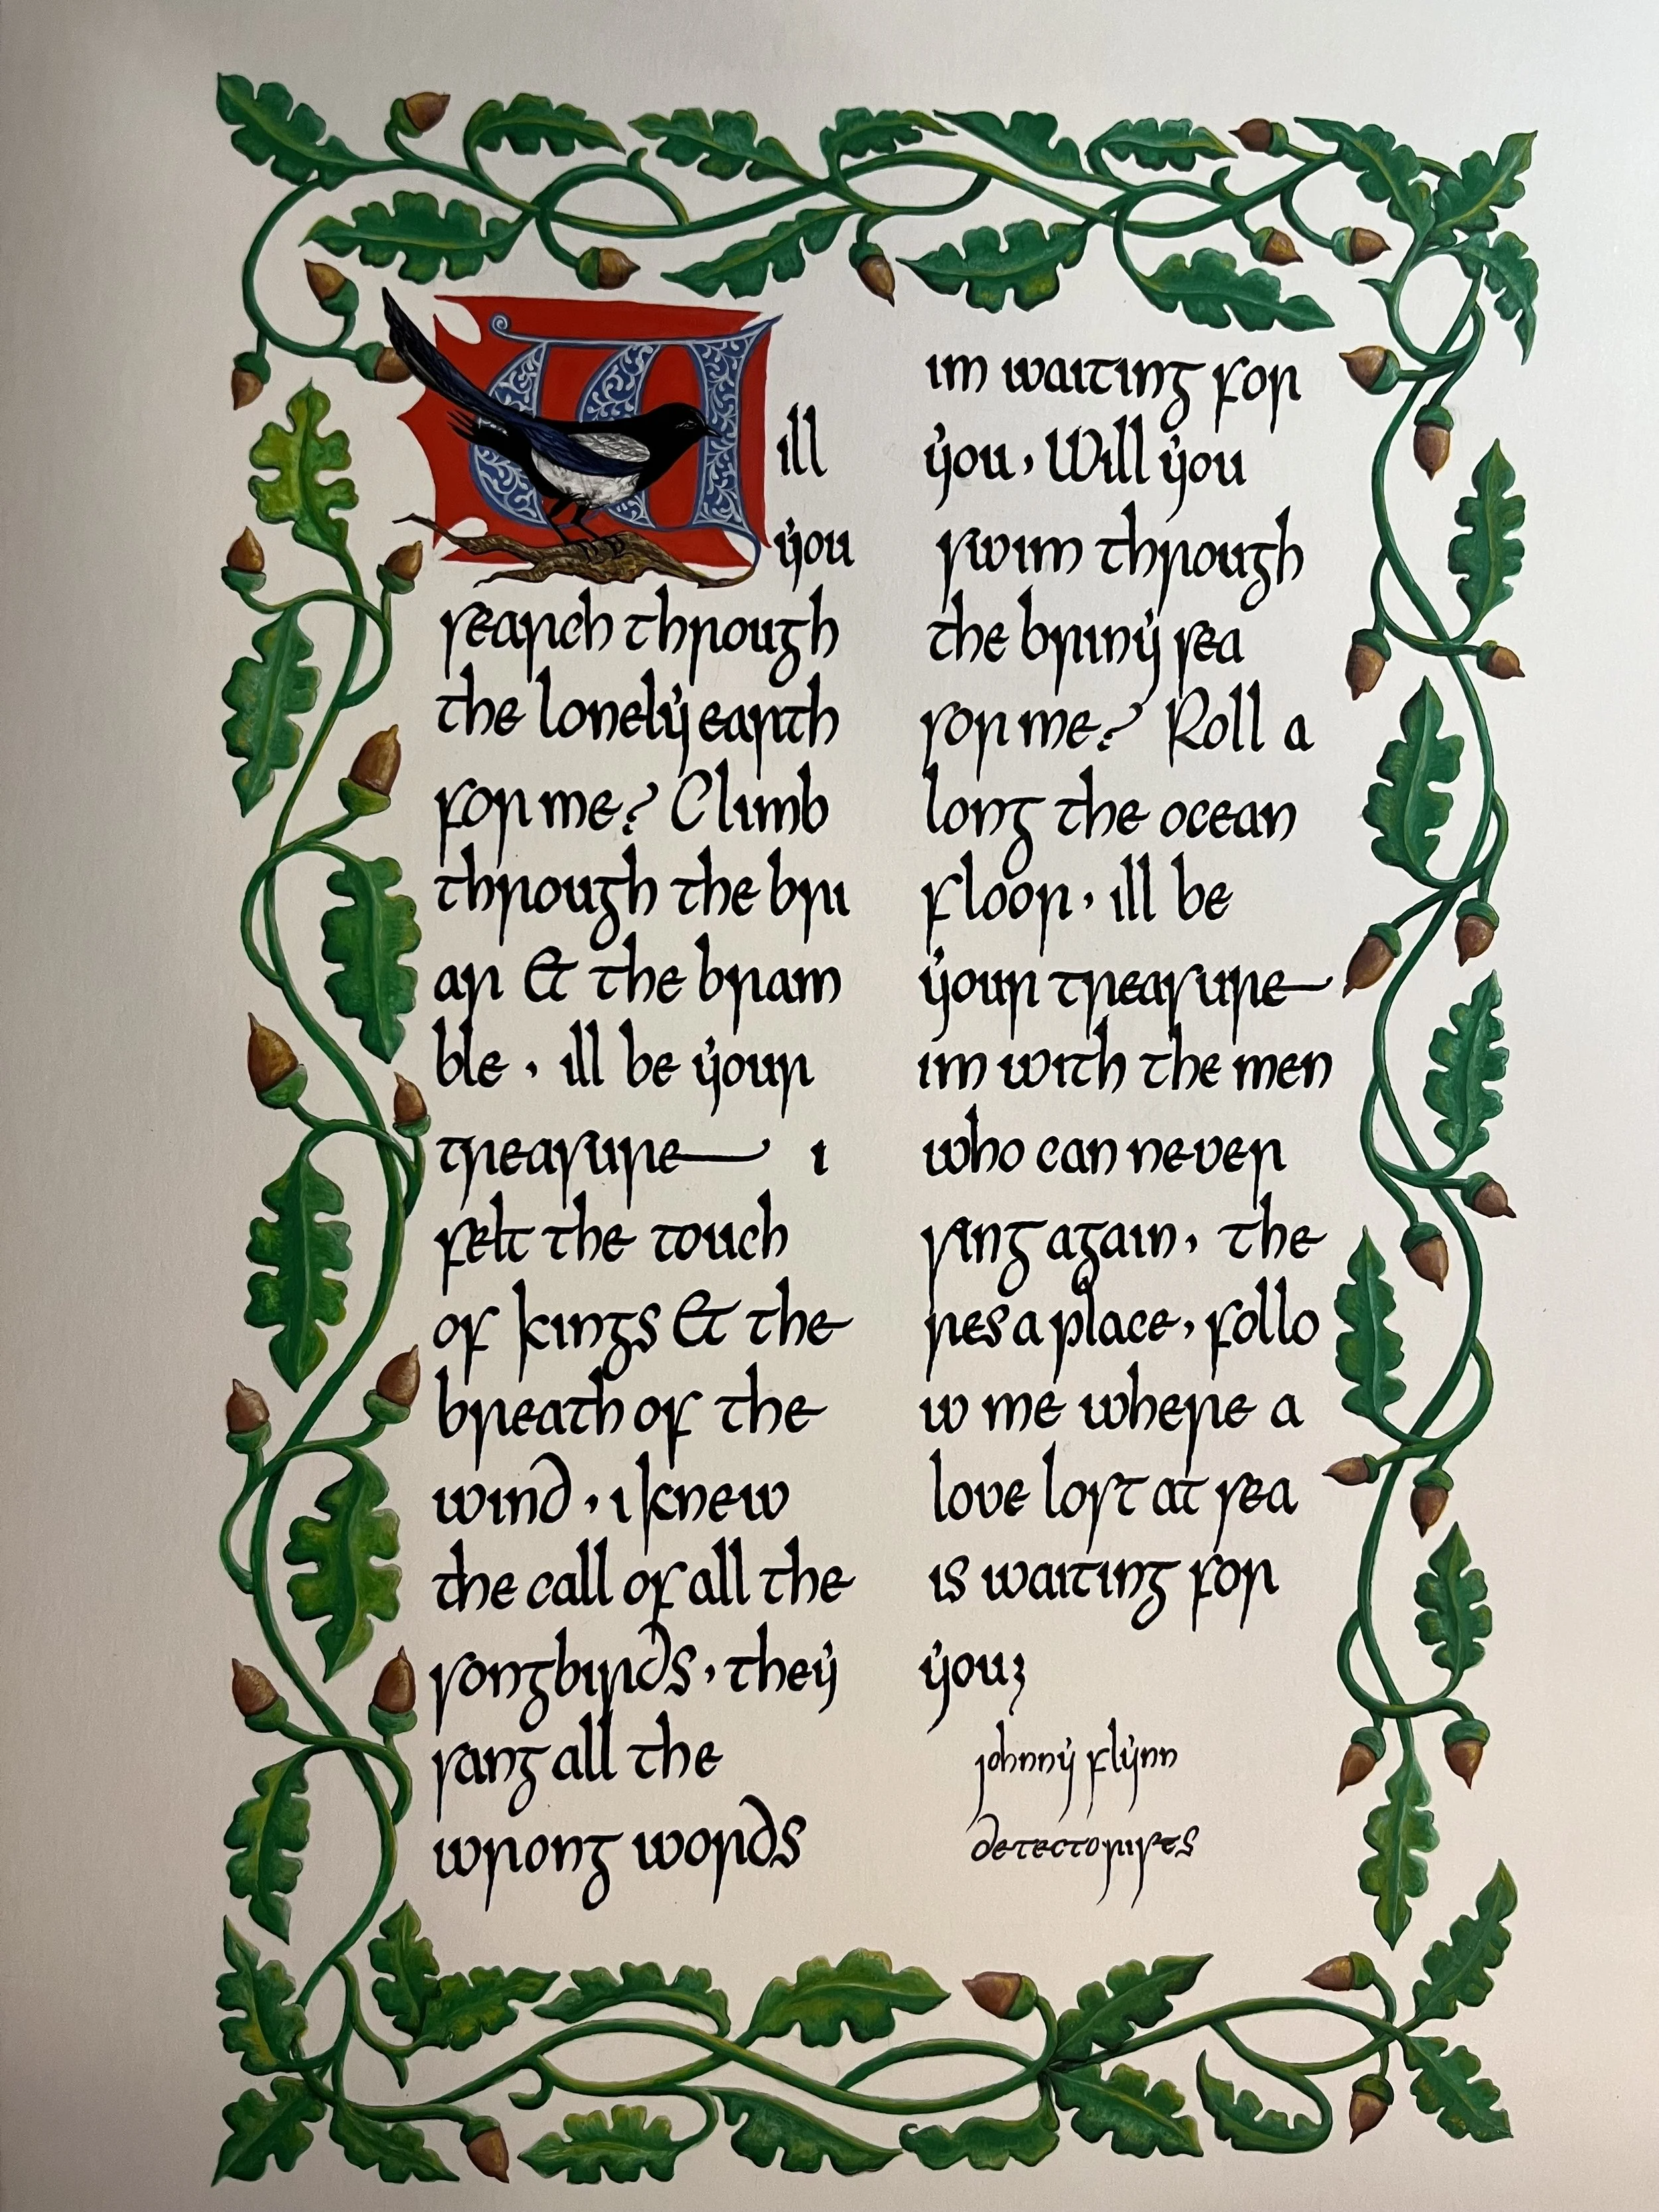 Will
you
search through
the lonely earth
for me? Climb
through the bri
ar & the bram
ble, ill be your
treasure i
felt the touch
of kings & the
breath of the
wind, i knew
the call of all the
songbirds, they
sang all the
wrong words
im waiting for
you, Will you
swim through
the briny sea
for me? Roll a
long the ocean
floor, ill be
your treasure
im with the men
who can never
sing again, the
res a place, follo
w me where a
love lost at sea
is waiting for
you;
johnny flynn
detectorists